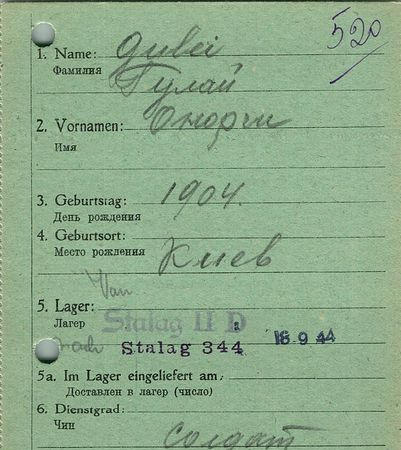 520
1. Name: Gulei
Фамилия Гулай
2. Vornamen: Онофрий
Имя
3. Geburtstag: 1904.
День рождения
4. Geburtsort:
Место рождения Киев
Von
5. Lager: Stalag II D
Лагер
nach Stalag 344 18.9.44
5a. Im Lager eingeliefert am:
Доставлен в лагер (число)
6. Dienstgrad:
Чин солдат